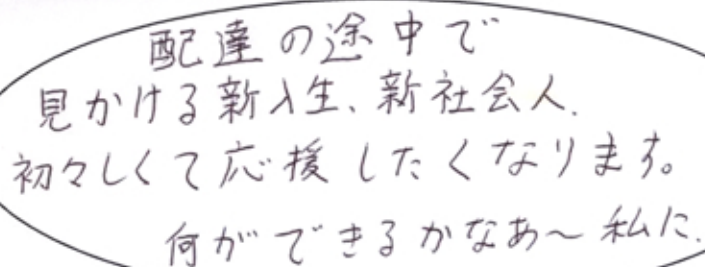 配達の途中で
見かける新入生、新社会人.
初々しくて応援したくなります。
何ができるかなあ～私に.